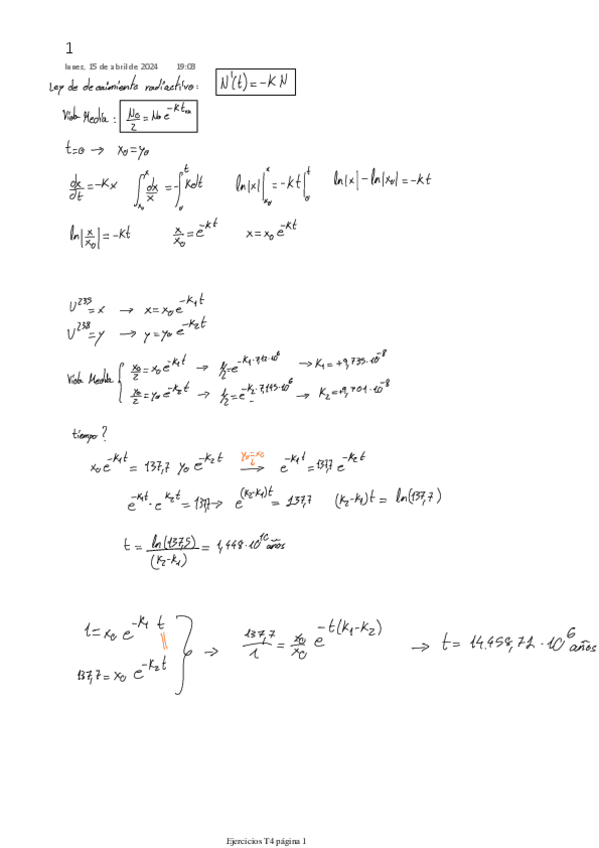 1
lunes, 15 de abril de 2024 19:03
Ley de decaimiento radiactivo: N'(t) = -K N
Vida Media: N₀/2 = N₀ e^-Kt
t=0 → x₀=y₀
dx/dt = -Kx ∫_x₀^x dx/x = -∫_0^t Kdt ln|x| |_x₀^x = -Kt |_0^t ln|x| - ln|x₀| = -Kt
ln|x/x₀| = -Kt x/x₀ = e^-Kt x = x₀ e^-Kt
U²³⁵ = x → x = x₀ e^-K₁t
U²³⁸ = y → y = y₀ e^-K₂t
Vida Media { x₀/2 = x₀ e^-K₁t → 1/2 = e → K₁ = +9,735·10^-8
= y₀ e^-K₂t → 1/2 = e^-K₂·7,145·10^6 → K₂ = +9,701·10^-8
tiempo?
x₀ e^-K₁t = 137,7 y₀ e^-K₂t y₀=x₀ → e^-K₁t = 137,7 e^-K₂t
e^-K₁t · e^K₂t = 137,7 → e^(K₂-K₁)t = 137,7 (K₂-K₁)t = ln(137,7)
t = ln(137,5)/(K₂-K₁) = 1,448·10^10 años
1 = x₀ e^-K₁ t
137,7 = x₀ e^-K₂t } → 137,7/1 = x₀/x₀ e^-t(K₁-K₂) → t = 14.458,72 · 10^6 años
Ejercicios T4 página 1